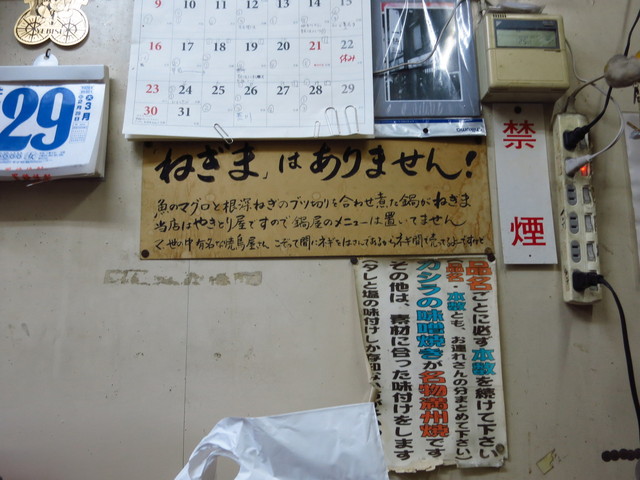 9 10 11 12 13 14 15
16 17 18 19 20 21 22
休み
23 24 25 26 27 28 29
30 31
29
3月
「ねぎま」はありません!
魚のマグロと根深ねぎのブツ切りを合わせ煮た鍋がねぎま
当店はやきとり屋ですので鍋屋のメニューは置いてません
禁煙
品名ごとに必ず本数を続けて下さい
(品名・本数とも、お連れさんの分まとめて下さい)
カシラの味噌焼きが名物満州焼です
その他は、素材に合った味付けをします
(タレと塩の味付けしか